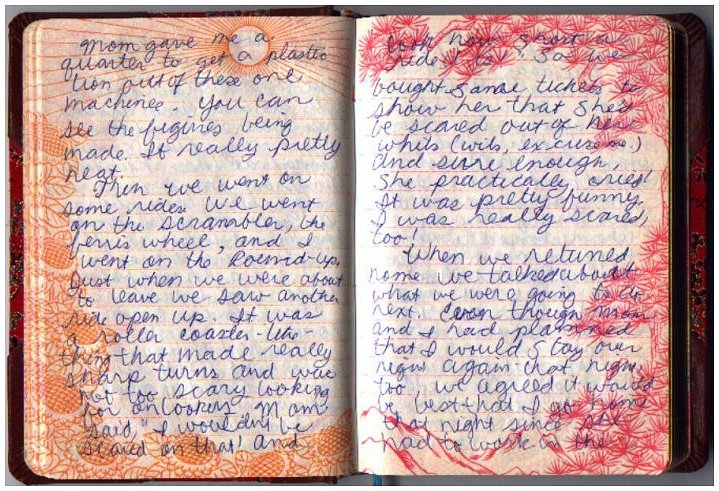 Mom gave me a
quarter to get a plastic
lion out of these one
machines. You can
see the figines being
made. It really pretty
neat.
Then we went on
some rides. We went
on the Scrambler, the
ferris wheel, and I
went on the Round-up.
Just when we were about
to leave we saw another
ride open up. It was
a roller coaster-like-
thing that made really
sharp turns and was
not too scary looking
for onlookers. Mom
said, "I wouldn't be
scared on that! And
look how short a
ride it is!" So we
bought some tickets to
show her that she'd
be scared out of her
whits (wits, excuse me)
and sure enough,
she practically cried!
It was pretty funny.
I was really scared,
too!
When we returned
home we talked about
what we were going to do
next. Even though Mom
and I had planned
that I would stay over
night again that night
too, we agreed it would
be best that I go home
that night since she
had to work in the